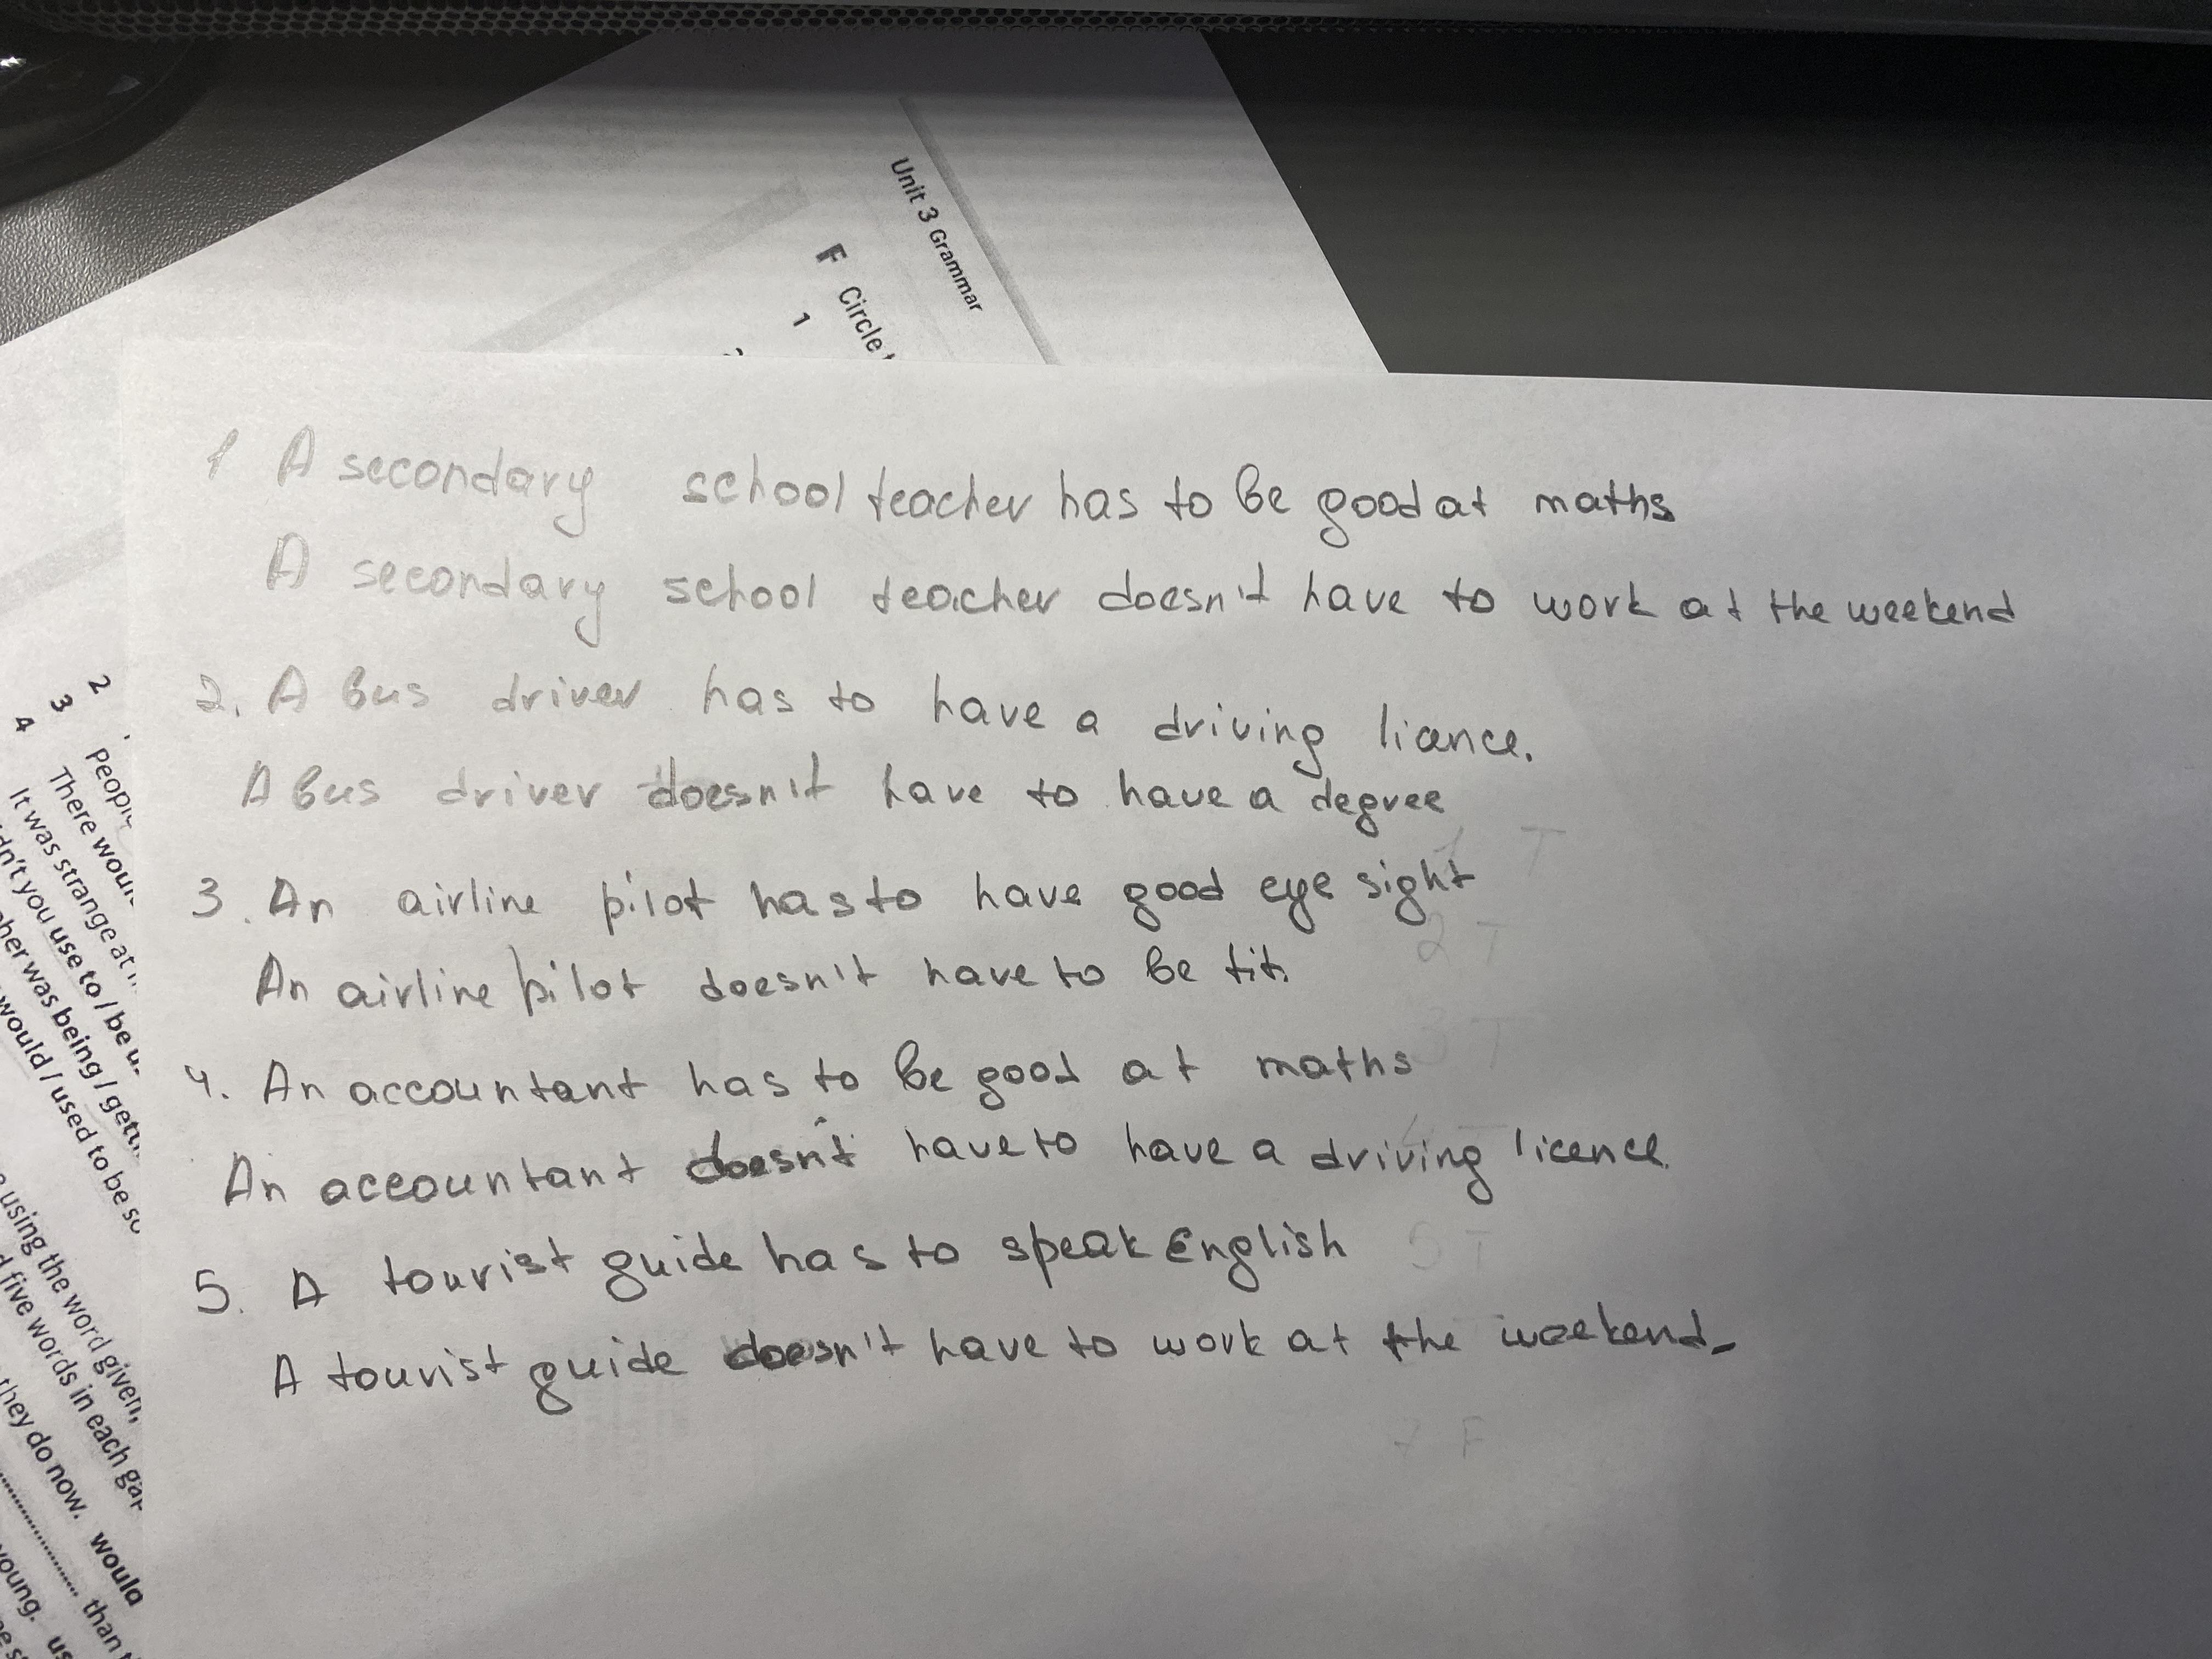 Unit 3 Grammar
F Circle
1
1 A secondary school teacher has to be good at maths
A secondary school teacher doesn't have to work at the weekend
2. A bus driver has to have a driving liance.
A bus driver doesn't have to have a degree
3. An airline pilot has to have good eye sight
An airline pilot doesn't have to be fit.
4. An accountant has to be good at maths
An accountant doesn't have to have a driving licence.
5. A tourist guide has to speak English
A tourist guide doesn't have to work at the weekend.
1 T
2 T
3 T
4 T
5 T
7 F
2
3 people
4 There would
It was strange at
dn't you use to / be u
her was being / getti
would / used to be so
using the word given,
five words in each gap
they do now. would
than
young. us